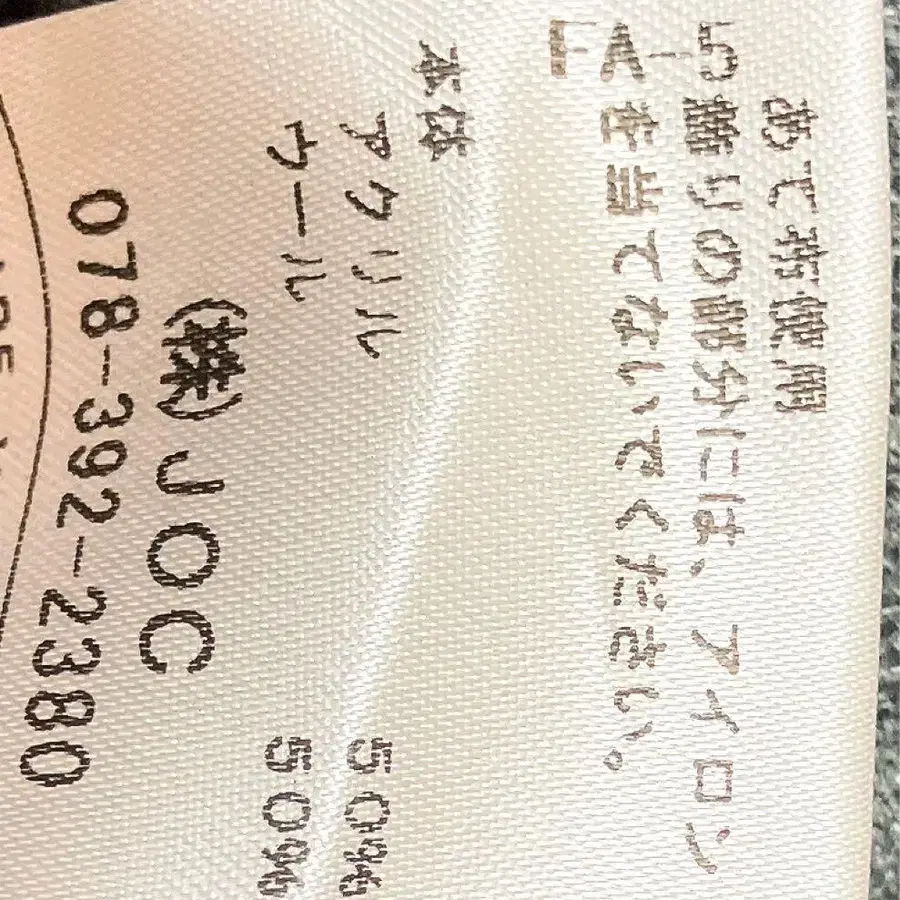 あて布使用
飾りの部分には、アイロン
を当てないでください。
本体
アクリル 50%
ウール 50%
(株)JOC
078-392-2380